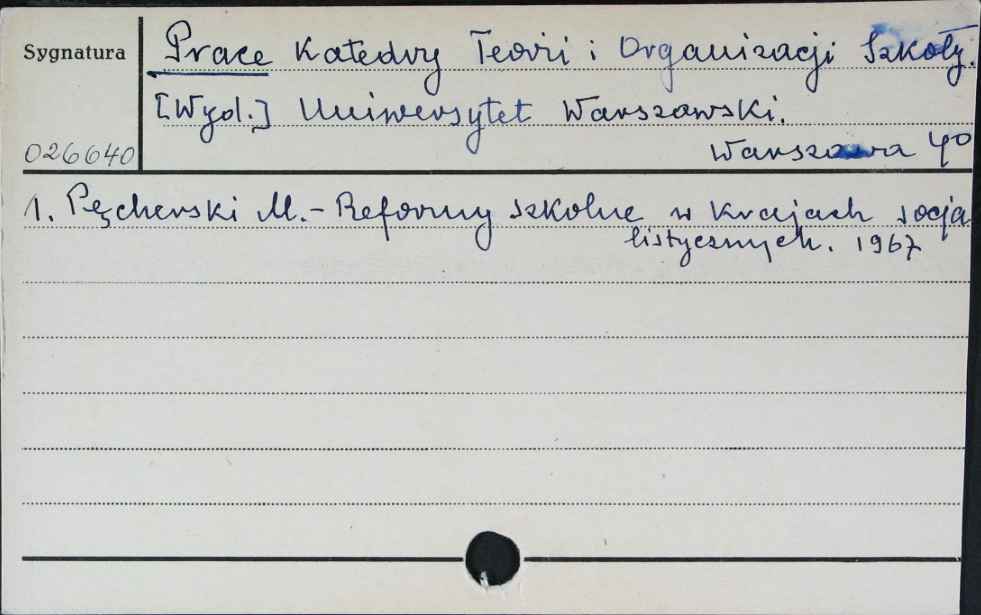 Sygnatura
Prace Katedry Teorii i Organizacji Szkoły.
[Wyd.] Uniwersytet Warszawski.
026640
Warszawa 4º
1. Pęcherski M. - Reformy szkolne w krajach socja
listycznych. 1967